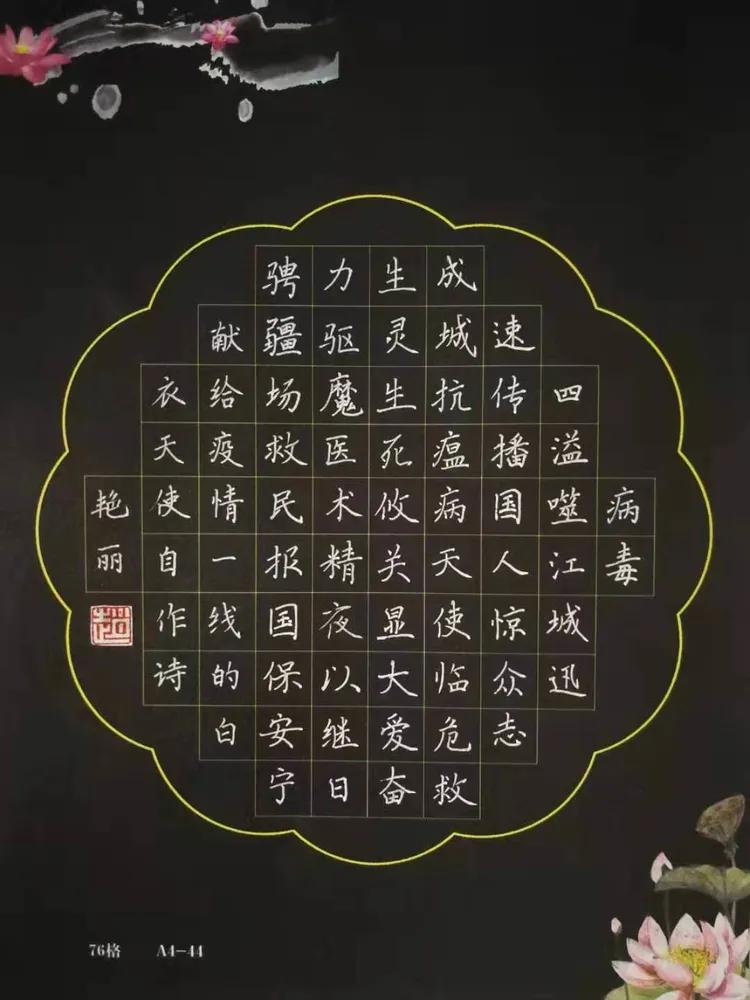 病毒
四溢噬江城迅
速传播国人惊众志
成城抗瘟病天使临危救
生灵生死攸关显大爱奋
力驱魔医术精夜以继日
骋疆场救民报国保安宁
献给疫情一线的白
衣天使自作诗
艳丽
76格 A4-44